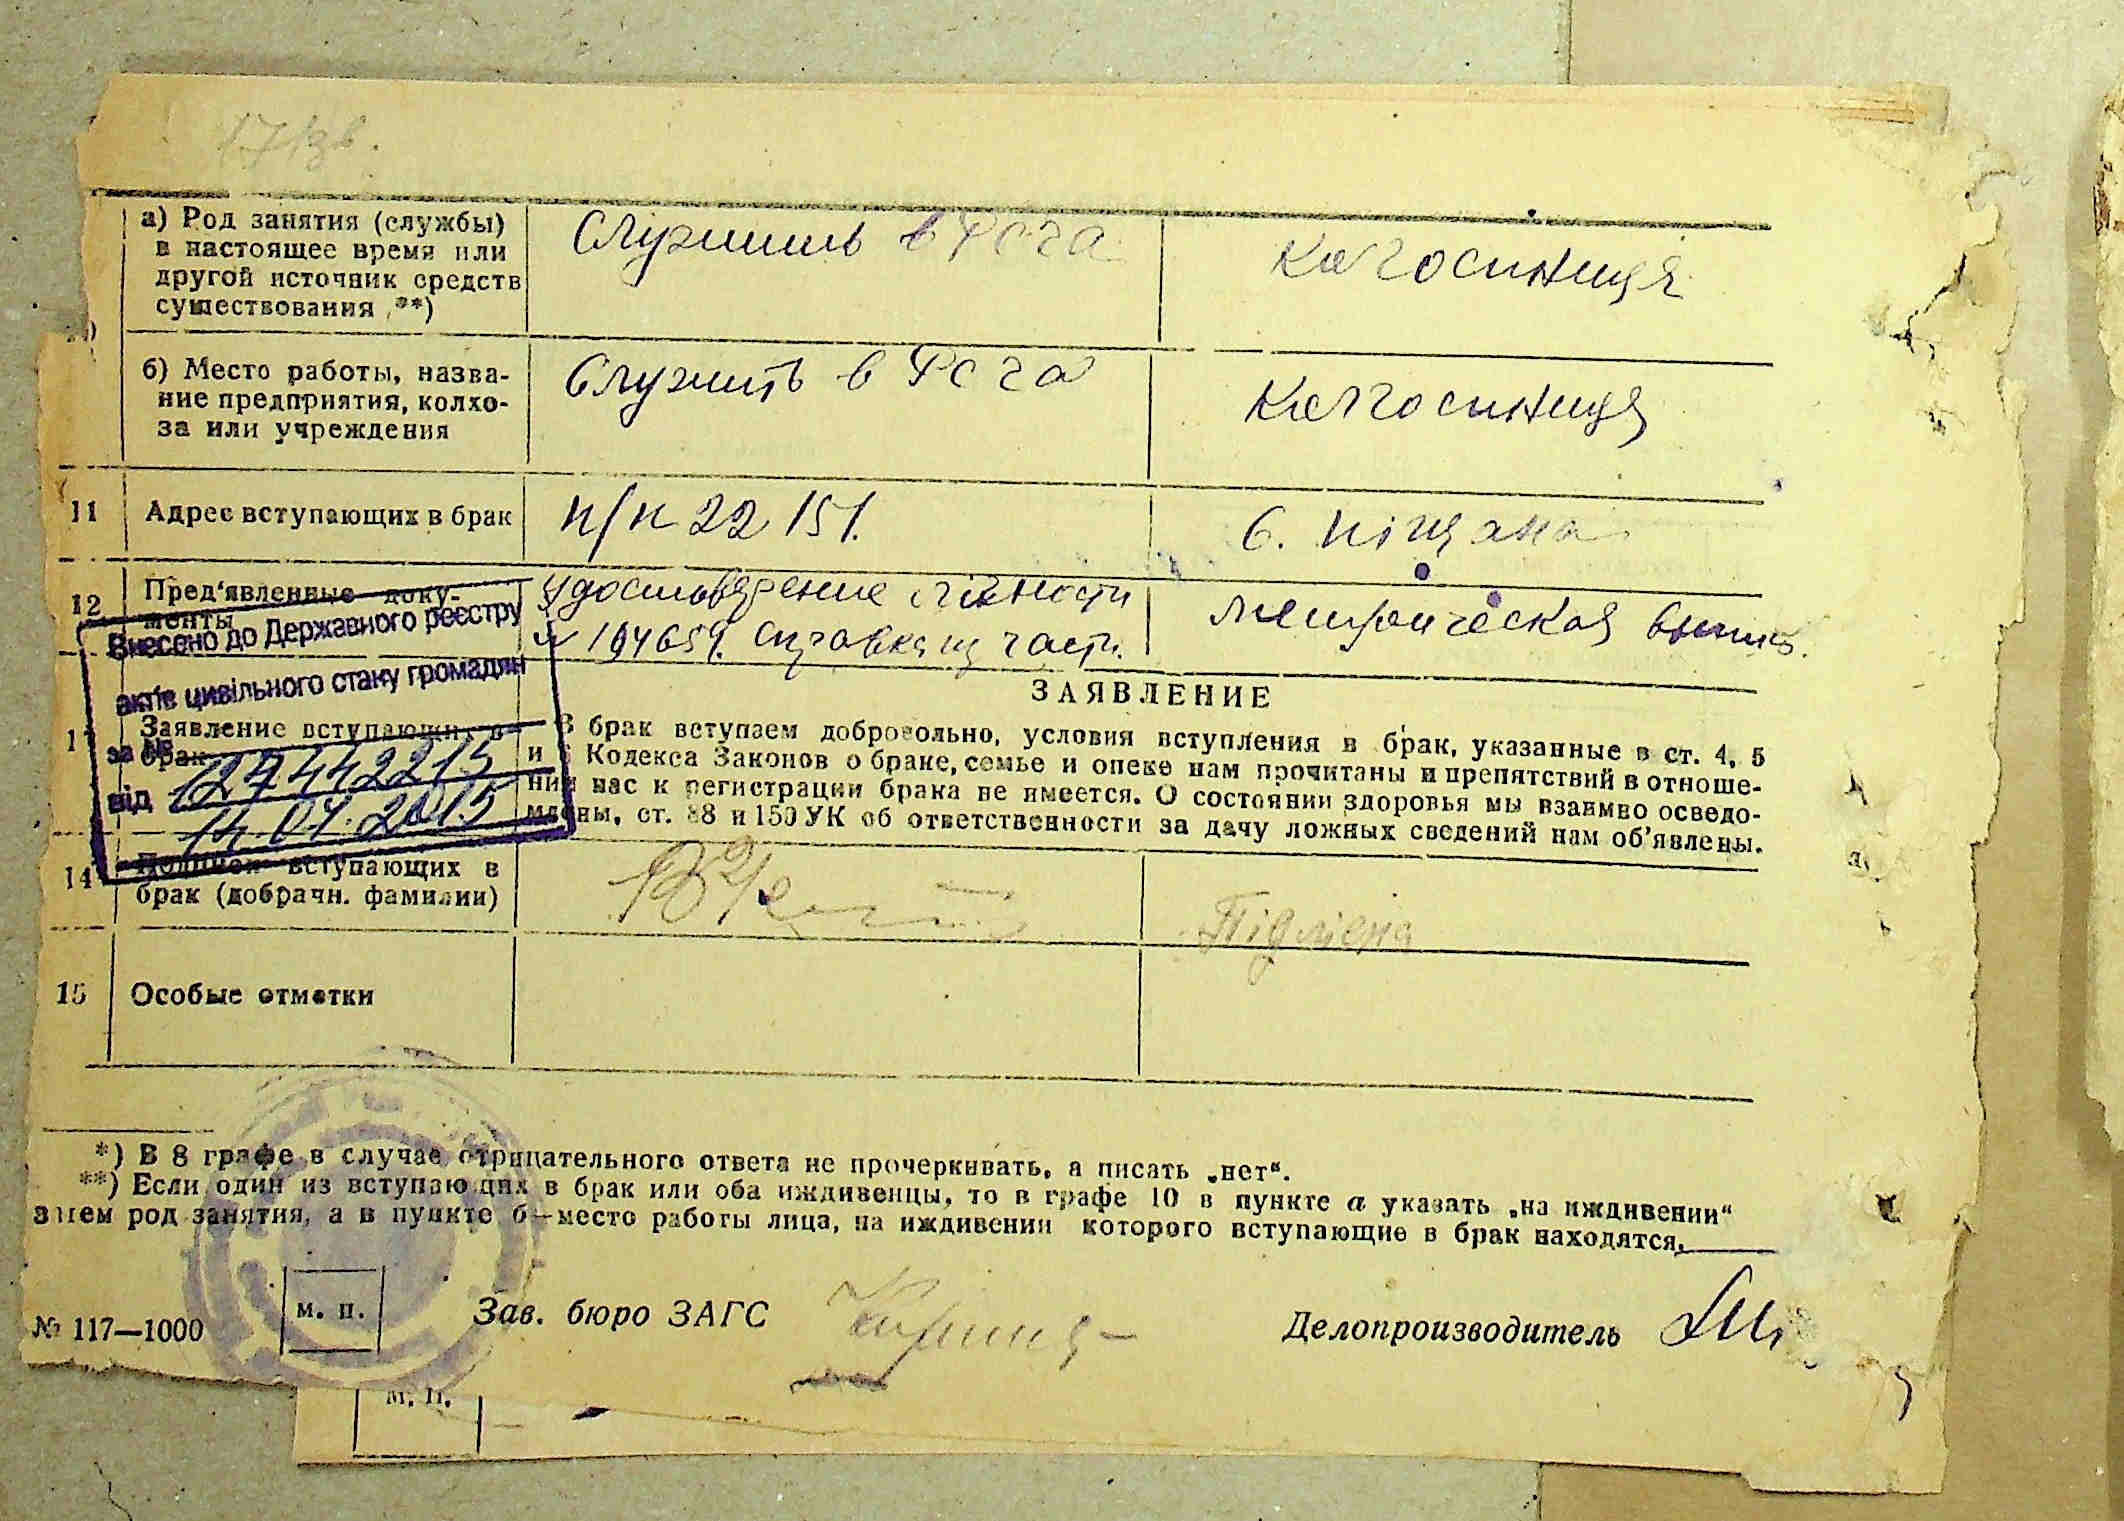 а) Род занятия (службы)
в настоящее время или
другой источник средств
существования **)
Служить в Рсча
Колгоспниця
б) Место работы, назва-
ние предприятия, колхо-
за или учреждения
Служить в Рсча
Колгоспниця
11 Адрес вступающих в брак
п/п 22151.
с. Піщана
12 Пред'явленные доку-
менты
Удостоверение личности
№ 194659. Справка из части.
метрическая выпись.
Внесено до Державного реєстру
актів цивільного стану громадян
за №
від
14.04.2015
Заявление вступающих в
брак
ЗАЯВЛЕНИЕ
В брак вступаем добровольно, условия вступления в брак, указанные в ст. 4, 5
и Кодекса Законов о браке, семье и опеке нам прочитаны и препятствий в отноше-
нии нас к регистрации брака не имеется. О состоянии здоровья мы взаимно осведо-
млены, ст. 88 и 150 УК об ответственности за дачу ложных сведений нам об'явлены.
14 Подписи вступающих в
брак (добрачн. фамилии)
15 Особые отметки
*) В 8 графе в случае отрицательного ответа не прочеркивать, а писать „нет“.
**) Если один из вступающих в брак или оба иждивенцы, то в графе 10 в пункте а указать „на иждивении“
затем род занятия, а в пункте б—место работы лица, на иждивении которого вступающие в брак находятся.
№ 117—1000
м. п.
Зав. бюро ЗАГС
Делопроизводитель
м. п.